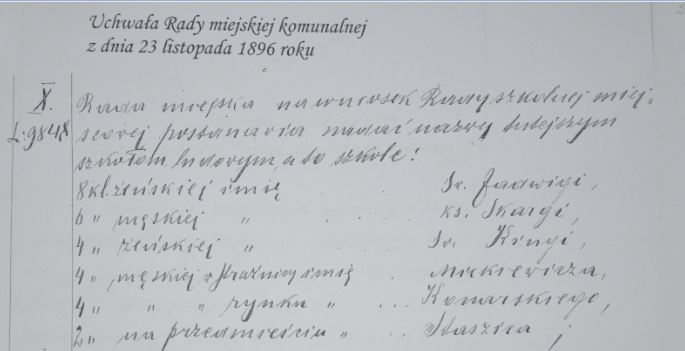 Uchwała Rady miejskiej komunalnej
z dnia 23 listopada 1896 roku
X. Rada miejska na wniosek Rady szkolnej miej-
L: 984 scowej postanawia nadać nazwy tutejszym
szkołom ludowym, a to szkole:
8 kl. żeńskiej imię Św. Jadwigi,
6 " męskiej " . ks. Skargi,
4 " żeńskiej " . Św. Kingi,
4 " męskiej w Strażnicy imię . . Mickiewicza,
4 " " " rynku " . . . Konarskiego,
2 " na przedmieściu " . . Staszica ;